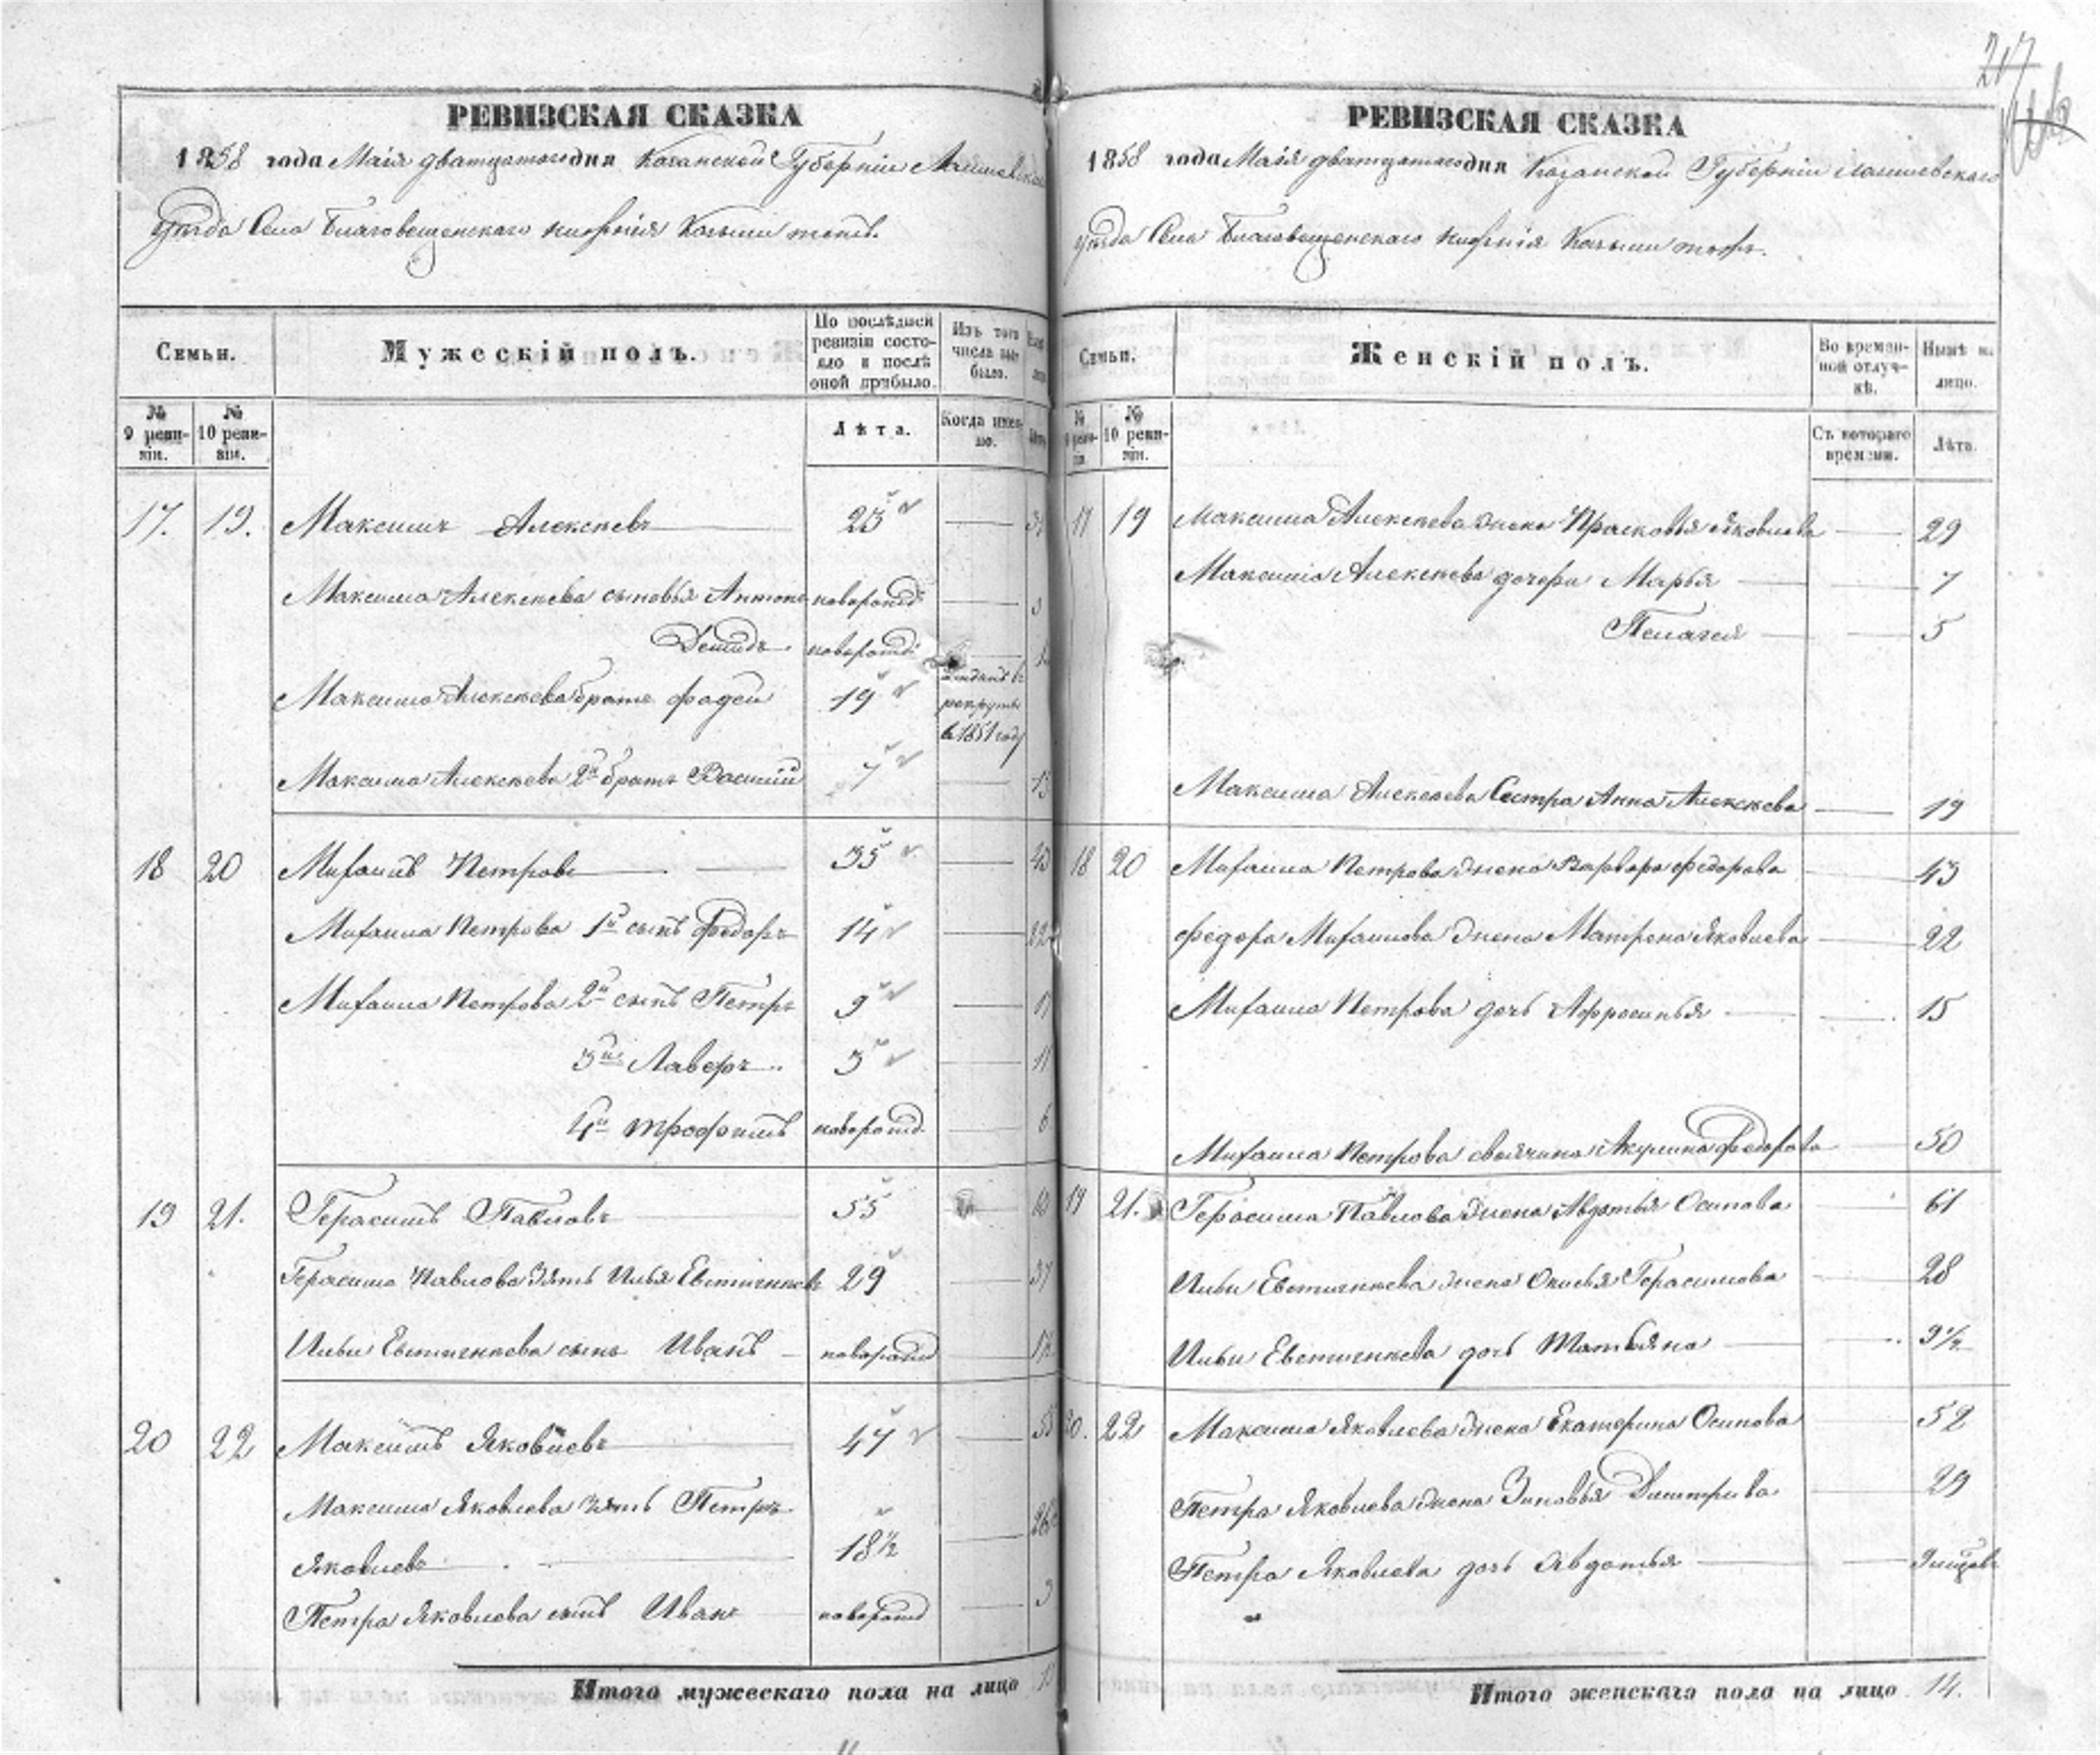 217
РЕВИЗСКАЯ СКАЗКА
1858 года Маія дватцатого дня Казанской Губерніи Лаишевского
уѣзда Села Благовещенскаго
Семьи.
Мужескій полъ.
По послѣдней ревизіи состояло и послѣ оной прибыло.
Изъ того числа выбыло.
№ 9 ревизіи.
№ 10 ревизіи.
Лѣта.
Когда именно.
17. 19. Максимъ Алексѣевъ 23
Максима Алексѣева сыновья Антонъ новорожд
Демидъ новорожд
Максима Алексѣева братъ Фадей 19 Отданъ въ рекруты в 1851 году
Максима Алексѣева 2й братъ Василій 7
18 20 Михаилъ Петровъ 35 43
Михаила Петрова 1й сынъ Федоръ 14 22
Михаила Петрова 2й сынъ Петръ 9 17
3й Лаверъ 3 11
4й Трофимъ новорожд 6
19 21. Герасимъ Павловъ 55
Герасима Павлова зять Илья Евстигнеевъ 29 37
Ильи Евстигнеева сынъ Иванъ новорожд
20 22 Максимъ Яковлевъ 47 55
Максима Яковлева зять Петръ
Яковлевъ 18½
Петра Яковлева сынъ Иванъ новорожд 3
Итого мужескаго пола на лицо
РЕВИЗСКАЯ СКАЗКА
1858 года Маія дватцатого дня Казанской Губерніи Лаишевскаго
уѣзда Села Благовещенскаго
Семьи.
Женскій полъ.
Во временной отлучкѣ.
Нынѣ на лицо.
№ 9 ревизіи.
№ 10 ревизіи.
Съ котораго времени.
Лѣта.
17 19 Максима Алексѣева жена Прасковья Яковлева 29
Максима Алексѣева дочери Марья 7
Пелагея 5
Максима Алексѣева Сестра Анна Алексѣева 19
18 20 Михаила Петрова жена Варвара Федорова 43
Федора Михаилова жена Матрена Яковлева 22
Михаила Петрова дочь Афросинья 15
Михаила Петрова своячина Акулина Федорова 50
19 21. Герасима Павлова жена Авдотья Осипова 61
Ильи Евстигнеева жена Герасимова 28
Ильи Евстигнеева дочь Татьяна 9½
20. 22 Максима Яковлева жена Екатерина Осипова 52
Петра Яковлева жена Зиновья Дмитріева 29
Петра Яковлева дочь Авдотья
Итого женскаго пола на лицо 14.